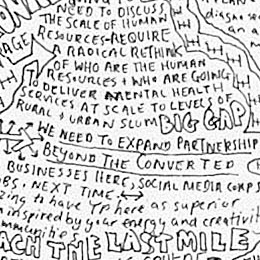 NEED TO DISCUSS
THE SCALE OF HUMAN
RESOURCES-REQUIRE
A RADICAL RETHINK
OF WHO ARE THE HUMAN
RESOURCES + WHO ARE GOING
TO DELIVER MENTAL HEALTH
SERVICES AT SCALE TO LEVELS OF
RURAL + URBAN SLUM BIG GAP
WE NEED TO EXPAND PARTNERSHIP
BEYOND THE CONVERTED
BUSINESSES HERE, SOCIAL MEDIA CORPS
NEXT TIME
to have YP here as superior
inspired by your energy and creativit
THE LAST MILE